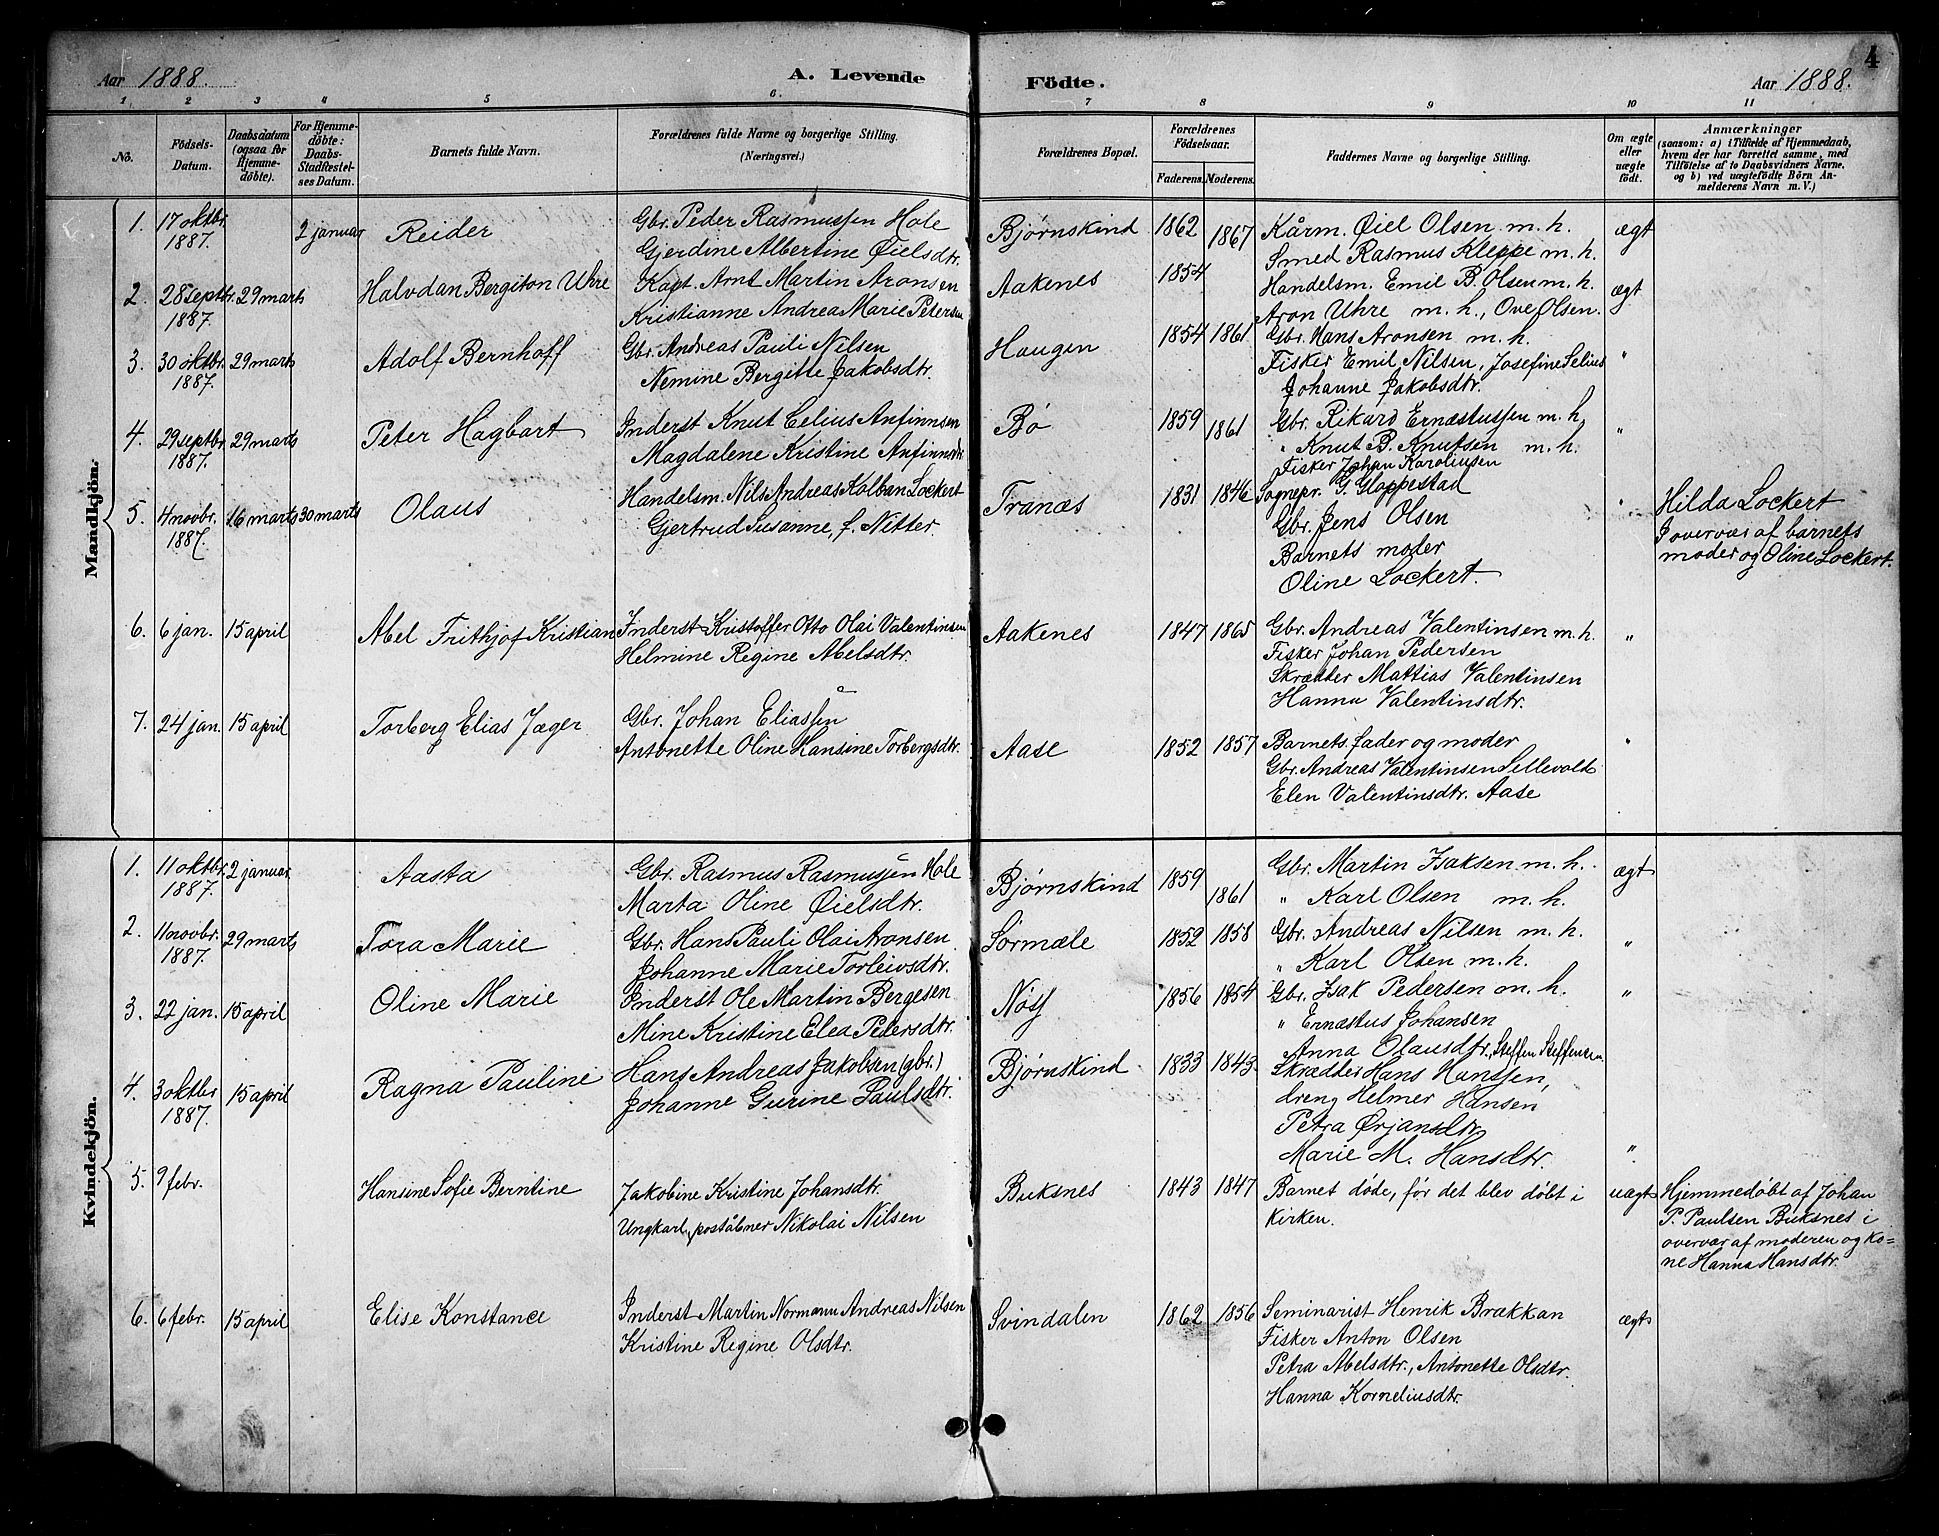 4
Aar 1888. A. Levende Födte. Aar 1888.
1 2 3 4 5 6. 7 8 9 10 11
No. Födsels-Datum. Daabsdatum (ogsaa for Hjemme-döbte). For Hjemme-döbte: Daabs-Stadfæstel-ses Datum. Barnets fulde Navn. Forældrenes fulde Navne og borgerlige Stilling. (Næringsvei.) Forældrenes Bopæl. Forældrenes Födselsaar. Faderens. Moderens. Faddernes Navne og borgerlige Stilling. Om ægte eller uægte födt. Anmærkninger (saasom: a) i Tilfælde af Hjemmedaab, hvem der har forrettet samme, med Tilföielse af to Daabsvidners Navne, og b) ved uægtefödte Börn An-melderens Navn m. V.)
Mandkjön.
1. 17 oktbr. 1887. 2 januar Reider Gbr. Peder Rasmussen Hole Bjørnskind 1862 1867 Kårm. Øiel Olsen m. h. ægt
Gjerdine Albertine Øielsdtr. Smed Rasmus Kleppe m. h.
2. 28 septbr. 1887. 29 marts Halvdan Bergiton Uhre Kapt. Arnt Martin Aronsen Aakenes 1854 Handelsm. Emil B. Olsen m. h. ægt
Kristianne Andrea Marie Petersen Aron Uhre m. h., Ove Olsen.
3. 30 oktbr. 1887. 29 marts Adolf Bernhoff Gbr. Andreas Pauli Nilsen Haugen 1854 1861 Gbr. Hans Aronsen m. h. "
Nemine Bergitte Jakobsdtr. Fisker Emil Nilsen, Josefine Selius
Johanne Jakobsdtr.
4. 29 septbr. 1887. 29 marts Peter Hagbart Inderst Knut Celius Anfinnsen Bø 1859 1861 Gbr. Rikard Ernæstussen m. h. "
Magdalene Kristine Anfinnsdtr " Knut B. Knutsen m. h.
Fisker Johan Karoliusen
5. 4 novbr. 1887. 16 marts 30 marts Olaus Handelsm. Nils Andreas Kolban Lockert Tranæs 1831 1846 Sognepr. G. Gloppestad " Hilda Lockert
Gjertrud Susanne, f. Nitter Gbr. Jens Olsen I overvær af barnets
Barnets moder moder og Oline Lockert.
Oline Lockert.
6. 6 jan. 15 april Abel Frithjof Kristian Inderst Kristoffer Otto Olai Valentinsen Aakenes 1847 1865 Gbr. Andreas Valentinsen m. h. "
Helmine Regine Abelsdtr. Fisker Johan Pedersen
Skrædder Mattias Valentinsen
Hanna Valentinsdtr.
7. 24 jan. 15 april Torberg Elias Jæger Gbr. Johan Eliassen
Antonette Oline Hansine Torbergsdtr. Aase 1852 1857 Barnets fader og moder "
Gbr. Andreas Valentinsen Sellevold
Elen Valentinsdtr. Aase
Kvindekjön.
1. 11 oktbr. 1887. 2 januar Aasta Gbr. Rasmus Rasmussen Hole Bjørnskind 1859 1861 Gbr. Martin Isaksen m. h. ægt
Marta Oline Øielsdtr. " Karl Olsen m. h.
2. 11 novbr. 1887. 29 marts Tora Marie Gbr. Hans Pauli Olai Aronsen Sørmæle 1852 1858 Gbr. Andreas Nilsen m. h. "
Johanne Marie Torleivsdtr. " Karl Olsen m. h.
3. 22 jan. 15 april Oline Marie Inderst Ole Martin Bergesen Nøss 1856 1854 Gbr. Isak Pedersen m. h. "
Mine Kristine Elea Pedersdtr. " Ernæstus Johansen
Anna Olausdtr., Steffen Steffensen
4. 3 oktbr 1887. 15 april Ragna Pauline Hans Andreas Jakobsen (gbr.) Bjørnskind 1833 1843 Skrædder Hans Hanssen,
Johanne Gurine Paulsdtr. dreng Helmer Hansen
Petra Ørjansdtr
Marie M. Hansdtr. "
5. 9 febr. Hansine Sofie Berntine Jakobine Kristine Johansdtr. Buksnes 1843 1847 Barnet døde, før det blev døbt i uægt Hjemmedøbt af Johan
Ungkarl, poståbner Nikolai Nilsen kirken. P. Paulsen Buksnes i
overvær af moderen og ko-
ne Hanna Hansdtr.
6. 6 febr. 15 april Elise Konstance Inderst Martin Normann Andreas Nilsen Svindalen 1862 1856 Seminarist Henrik Brakkan ægt
Kristine Regine Olsdtr. Fisker Anton Olsen
Petra Abelsdtr., Antonette Olsdtr.
Hanna Korneliusdtr.